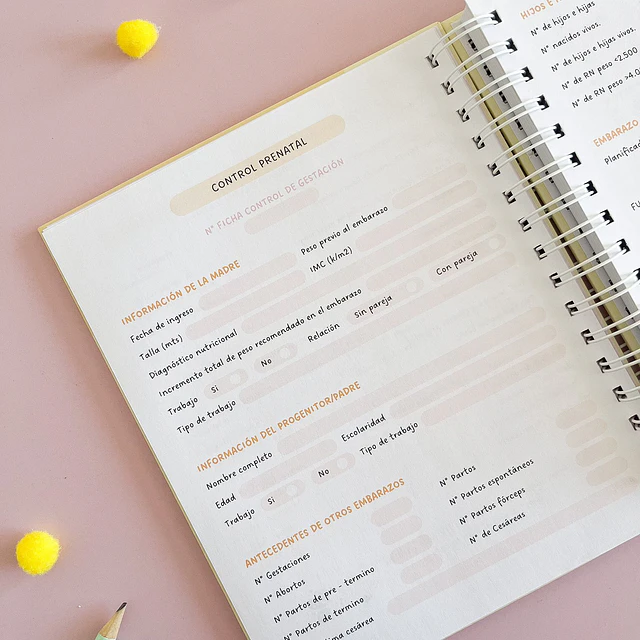 CONTROL PRENATAL
N° FICHA CONTROL DE GESTACIÓN
INFORMACIÓN DE LA MADRE
Fecha de ingreso
Peso previo al embarazo
Talla (mts)
IMC (k/m2)
Diagnóstico nutricional
Incremento total de peso recomendado en el embarazo
Trabajo Si No Relación Sin pareja Con pareja
Tipo de trabajo
INFORMACIÓN DEL PROGENITOR/PADRE
Nombre completo
Edad
Escolaridad
Trabajo Si No Tipo de trabajo
ANTECEDENTES DE OTROS EMBARAZOS
N° Gestaciones
N° Abortos
N° Partos de pre - termino
N° Partos de termino
cesárea
N° Partos
N° Partos espontáneos
N° Partos fórceps
N° de Cesáreas
HIJOS E
N° de hijos e hijas
N° nacidos vivos.
N° de hijos e hijas vivos.
N° de RN peso <2.500
N° de RN peso >4.0
EMBARAZO
Planificad